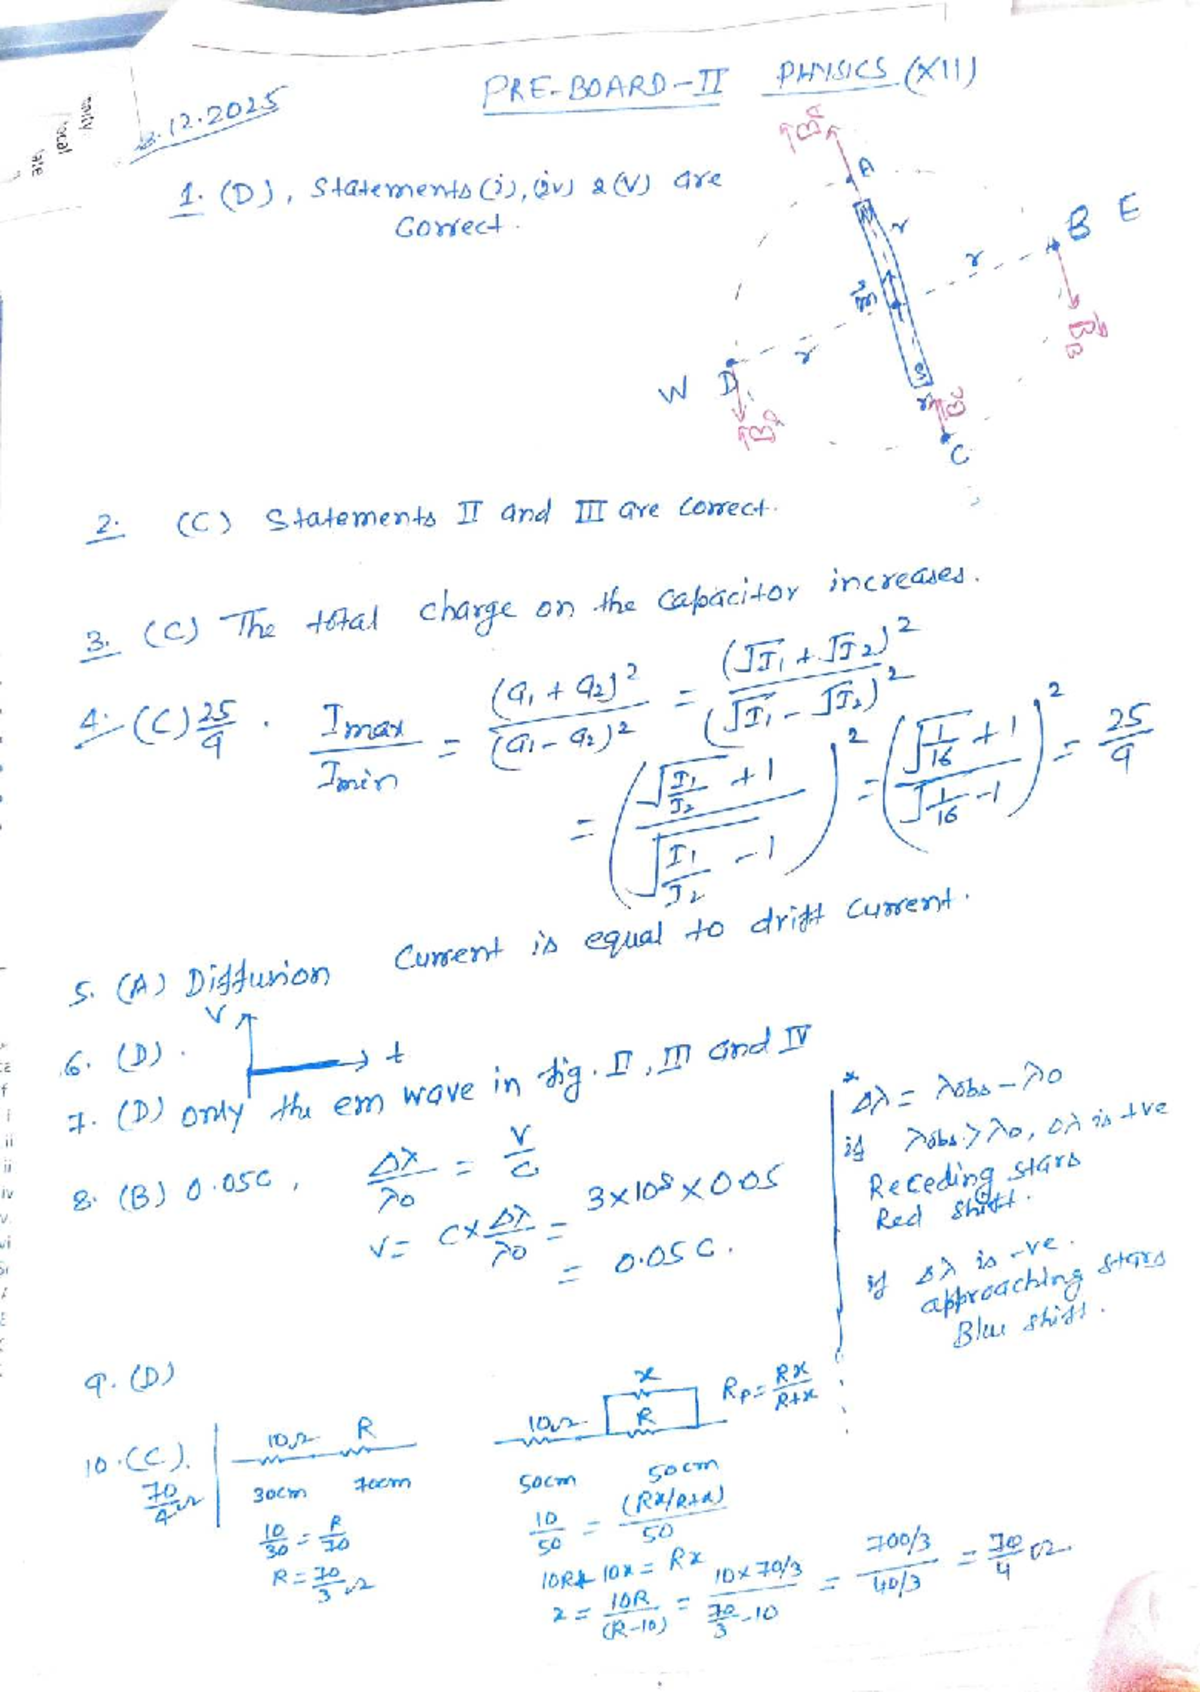 PRE-BOARD-II PHYSICS (XII)
.12.2025
1. (D), Statements (i), (iv) & (v) are
Correct.
A
r
B E
r
W D
r
C
2. (C) Statements II and III are correct.
3. (C) The total charge on the capacitor increases.
4. (C) 25/9 . Imax/Imin = (a1 + a2)²/(a1 - a2)² = (√I1 + √I2)²/(√I1 - √I2)²
= (√(I1/I2) + 1 / √(I1/I2) - 1)² = (√(1/16) + 1 / √(1/16) - 1)² = 25/9
5. (A) Diffusion Current is equal to drift current.
6. (D). V t
7. (D) only the em wave in fig. II, III and IV
8. (B) 0.05C, Δλ/λ0 = V/C
V = C × Δλ/λ0 = 3×10⁸ × 0.05
= 0.05 C.
* Δλ = λobs - λ0
if λobs > λ0, Δλ is +ve
Receding stars
Red shift.
if Δλ is -ve.
approaching stars
Blue shift.
9. (D)
10. (C).
70/4 Ω
10Ω R
30cm 70cm
10/30 = R/70
R = 70/3 Ω
x
10Ω R
Rp = Rx/R+x
50cm 50cm
10/50 = (Rx/R+x)/50
10R + 10x = Rx
x = 10R/(R-10) = 10×70/3 / 70/3 - 10 = 700/3 / 40/3 = 70/4 Ω